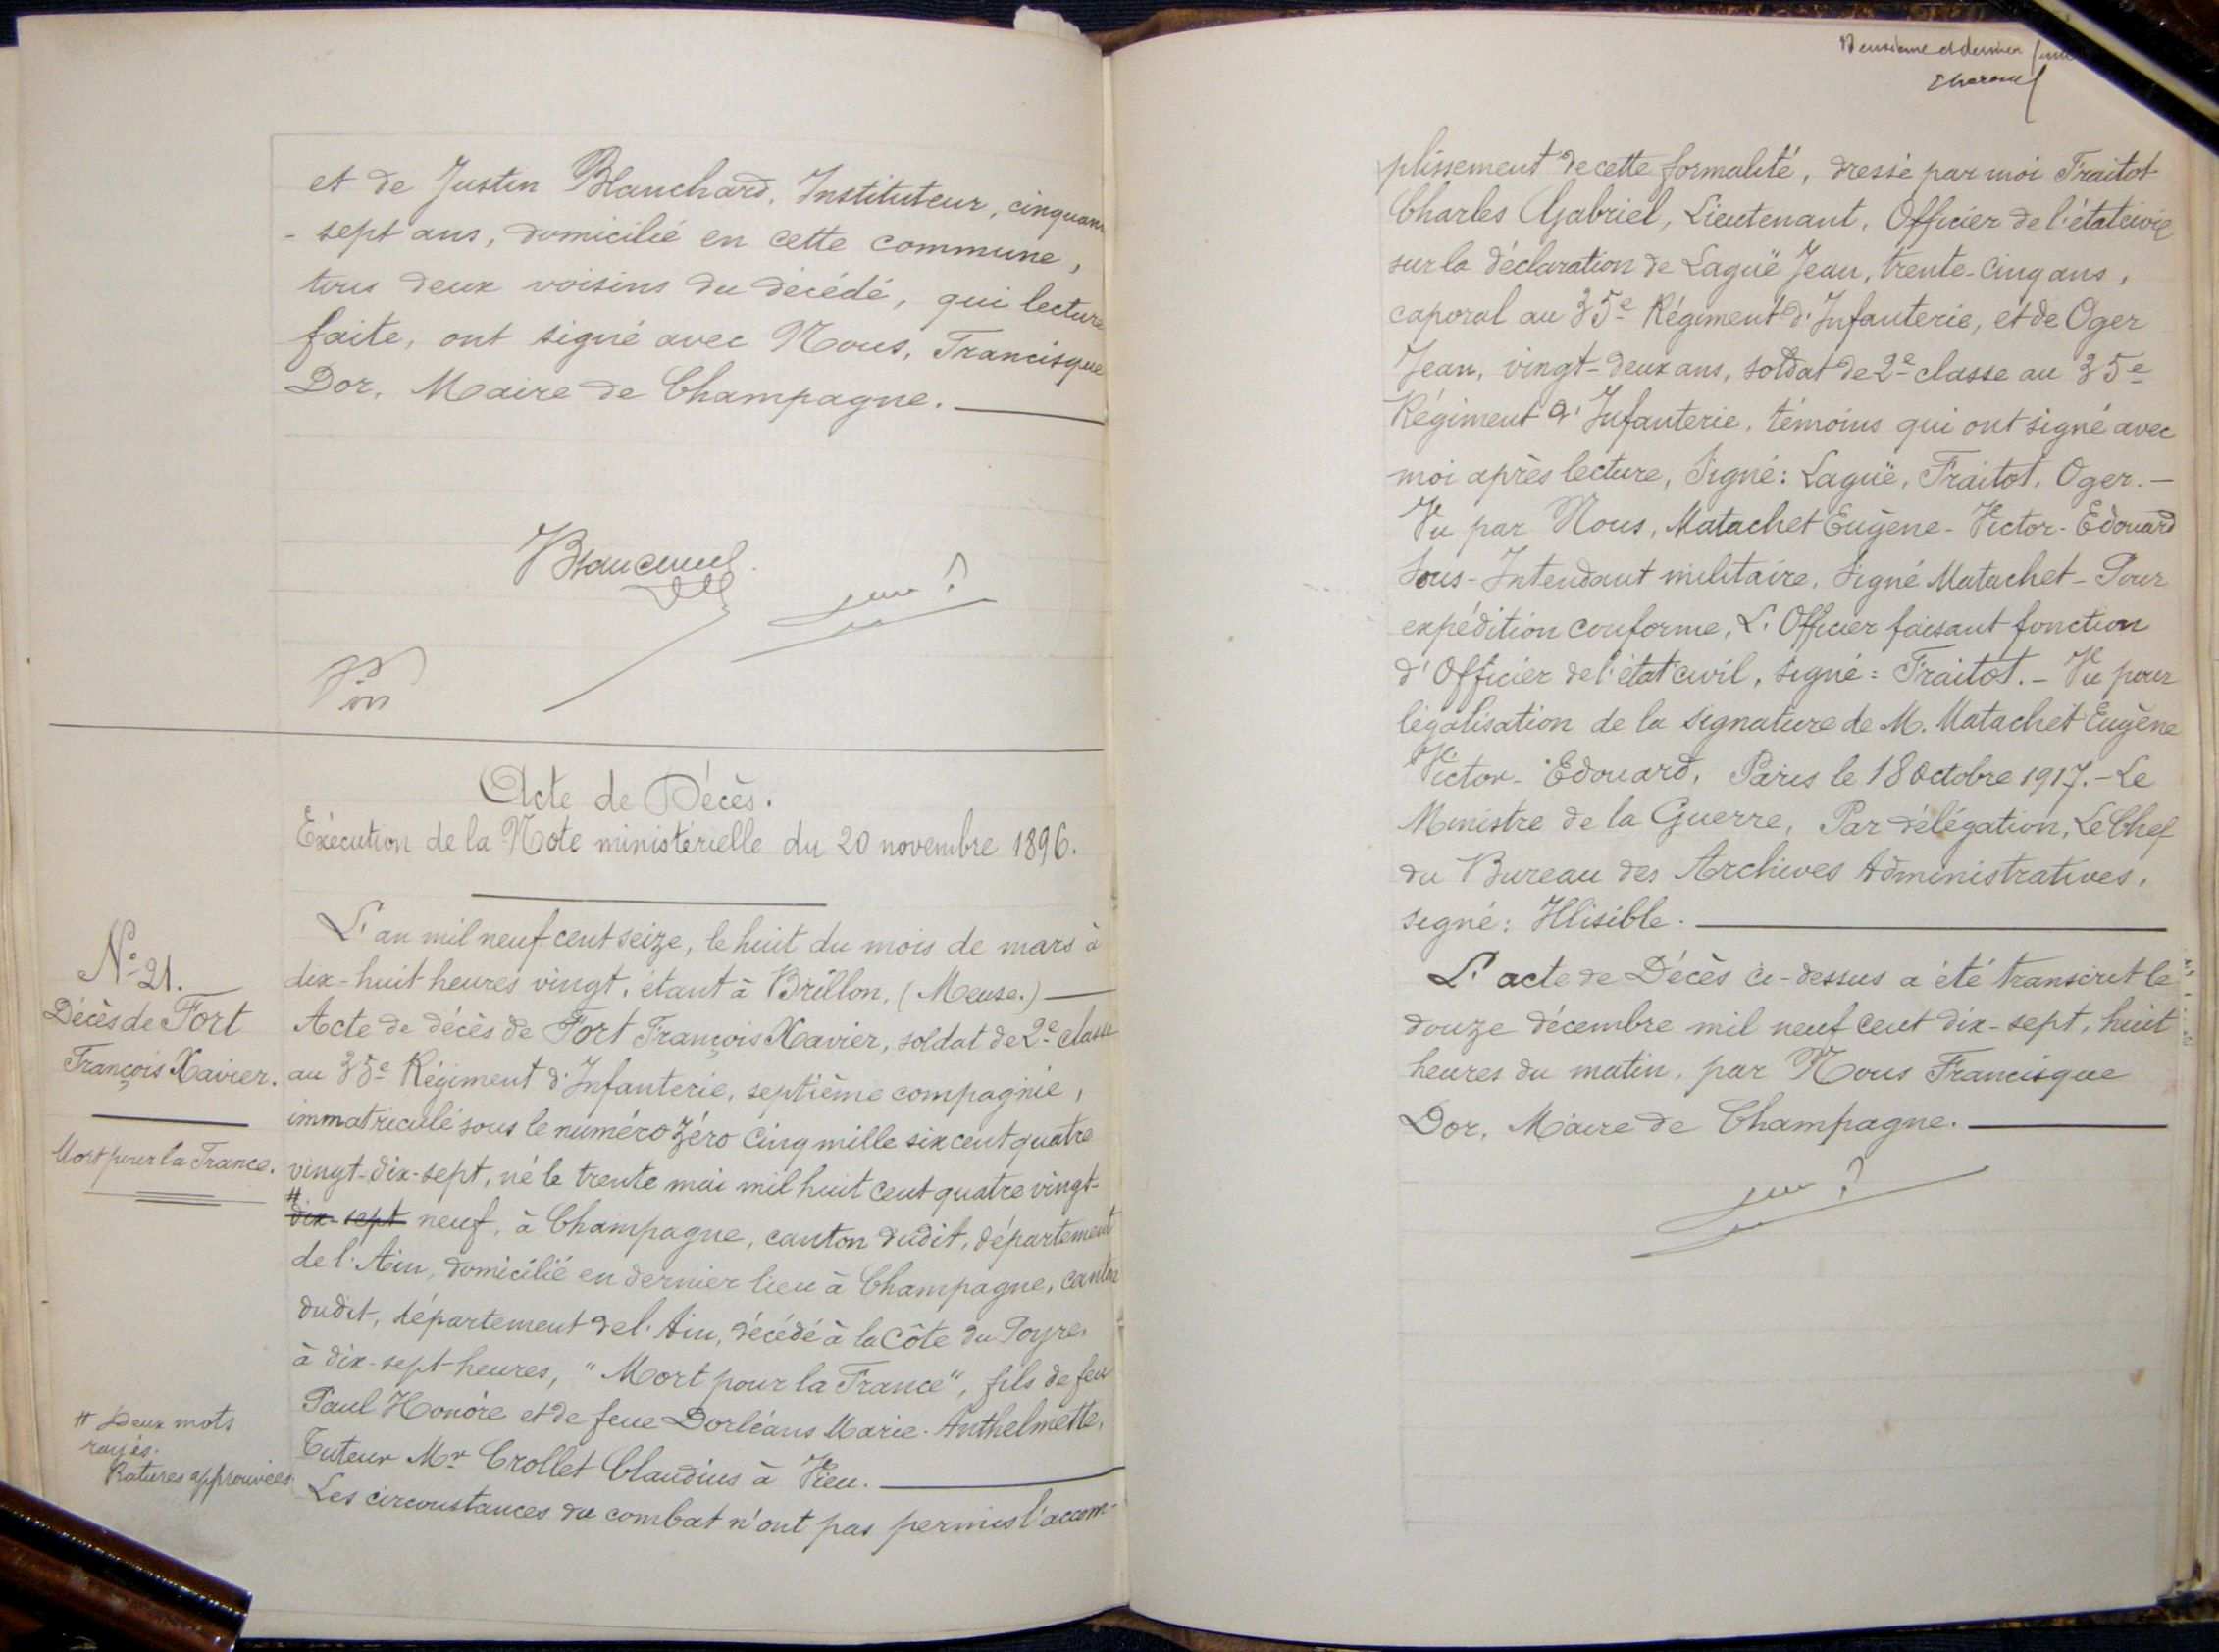 et de Justin Blanchard, Instituteur, cinquan
- sept ans, domicilié en cette commune,
tous deux voisins du décédé, qui lecture
faite, ont signé avec Nous, Francisque
Dor, Maire de Champagne.
Acte de Décès.
Exécution de la Note ministérielle du 20 novembre 1896.
N° 21.
Décès de Fort
François Xavier.
Mort pour la France.
L'an mil neuf cent seize, le huit du mois de mars à
dix-huit heures vingt, étant à Brillon, (Meuse.)
Acte de décès de Fort François Xavier, soldat de 2e classe
au 35e Régiment d'Infanterie, septième compagnie,
immatriculé sous le numéro zéro cinq mille six cent quatre
vingt-dix-sept, né le trente mai mil huit cent quatre vingt-
# dix-sept neuf, à Champagne, canton dudit, département
de l'Ain, domicilié en dernier lieu à Champagne, canton
dudit, département de l'Ain, décédé à la Côte du Poyre,
à dix-sept-heures, "Mort pour la France", fils de feu
Paul Honoré et de feue Dorléans Marie-Anthelmette.
Tuteur Mr Crollet Claudius à Vieu.
Les circonstances du combat n'ont pas permis l'accom-
# Deux mots
rayés.
Ratures approuvées.
Deuxième et dernier
plissement de cette formalité, dressé par moi Traitot
Charles Gabriel, Lieutenant, Officier de l'état civil
sur la déclaration de Laguë Jean, trente-cinq ans,
caporal au 35e Régiment d'Infanterie, et de Oger
Jean, vingt-deux ans, soldat de 2e classe au 35e
Régiment d'Infanterie, témoins qui ont signé avec
moi après lecture, Signé: Laguë, Traitot, Oger.-
Vu par Nous, Matachet Eugène-Victor-Edouard
Sous-Intendant militaire, Signé Matachet- Pour
expédition conforme, L'Officier faisant fonction
d'Officier de l'état civil, signé: Traitot.- Vu pour
légalisation de la signature de M. Matachet Eugène
Victor-Edouard, Paris le 18 Octobre 1917.- Le
Ministre de la Guerre, Par délégation, Le Chef
du Bureau des Archives Administratives,
signé: Illisible.
L'acte de Décès ci-dessus a été transcrit le
douze décembre mil neuf cent dix-sept, huit
heures du matin, par Nous Francisque
Dor, Maire de Champagne.